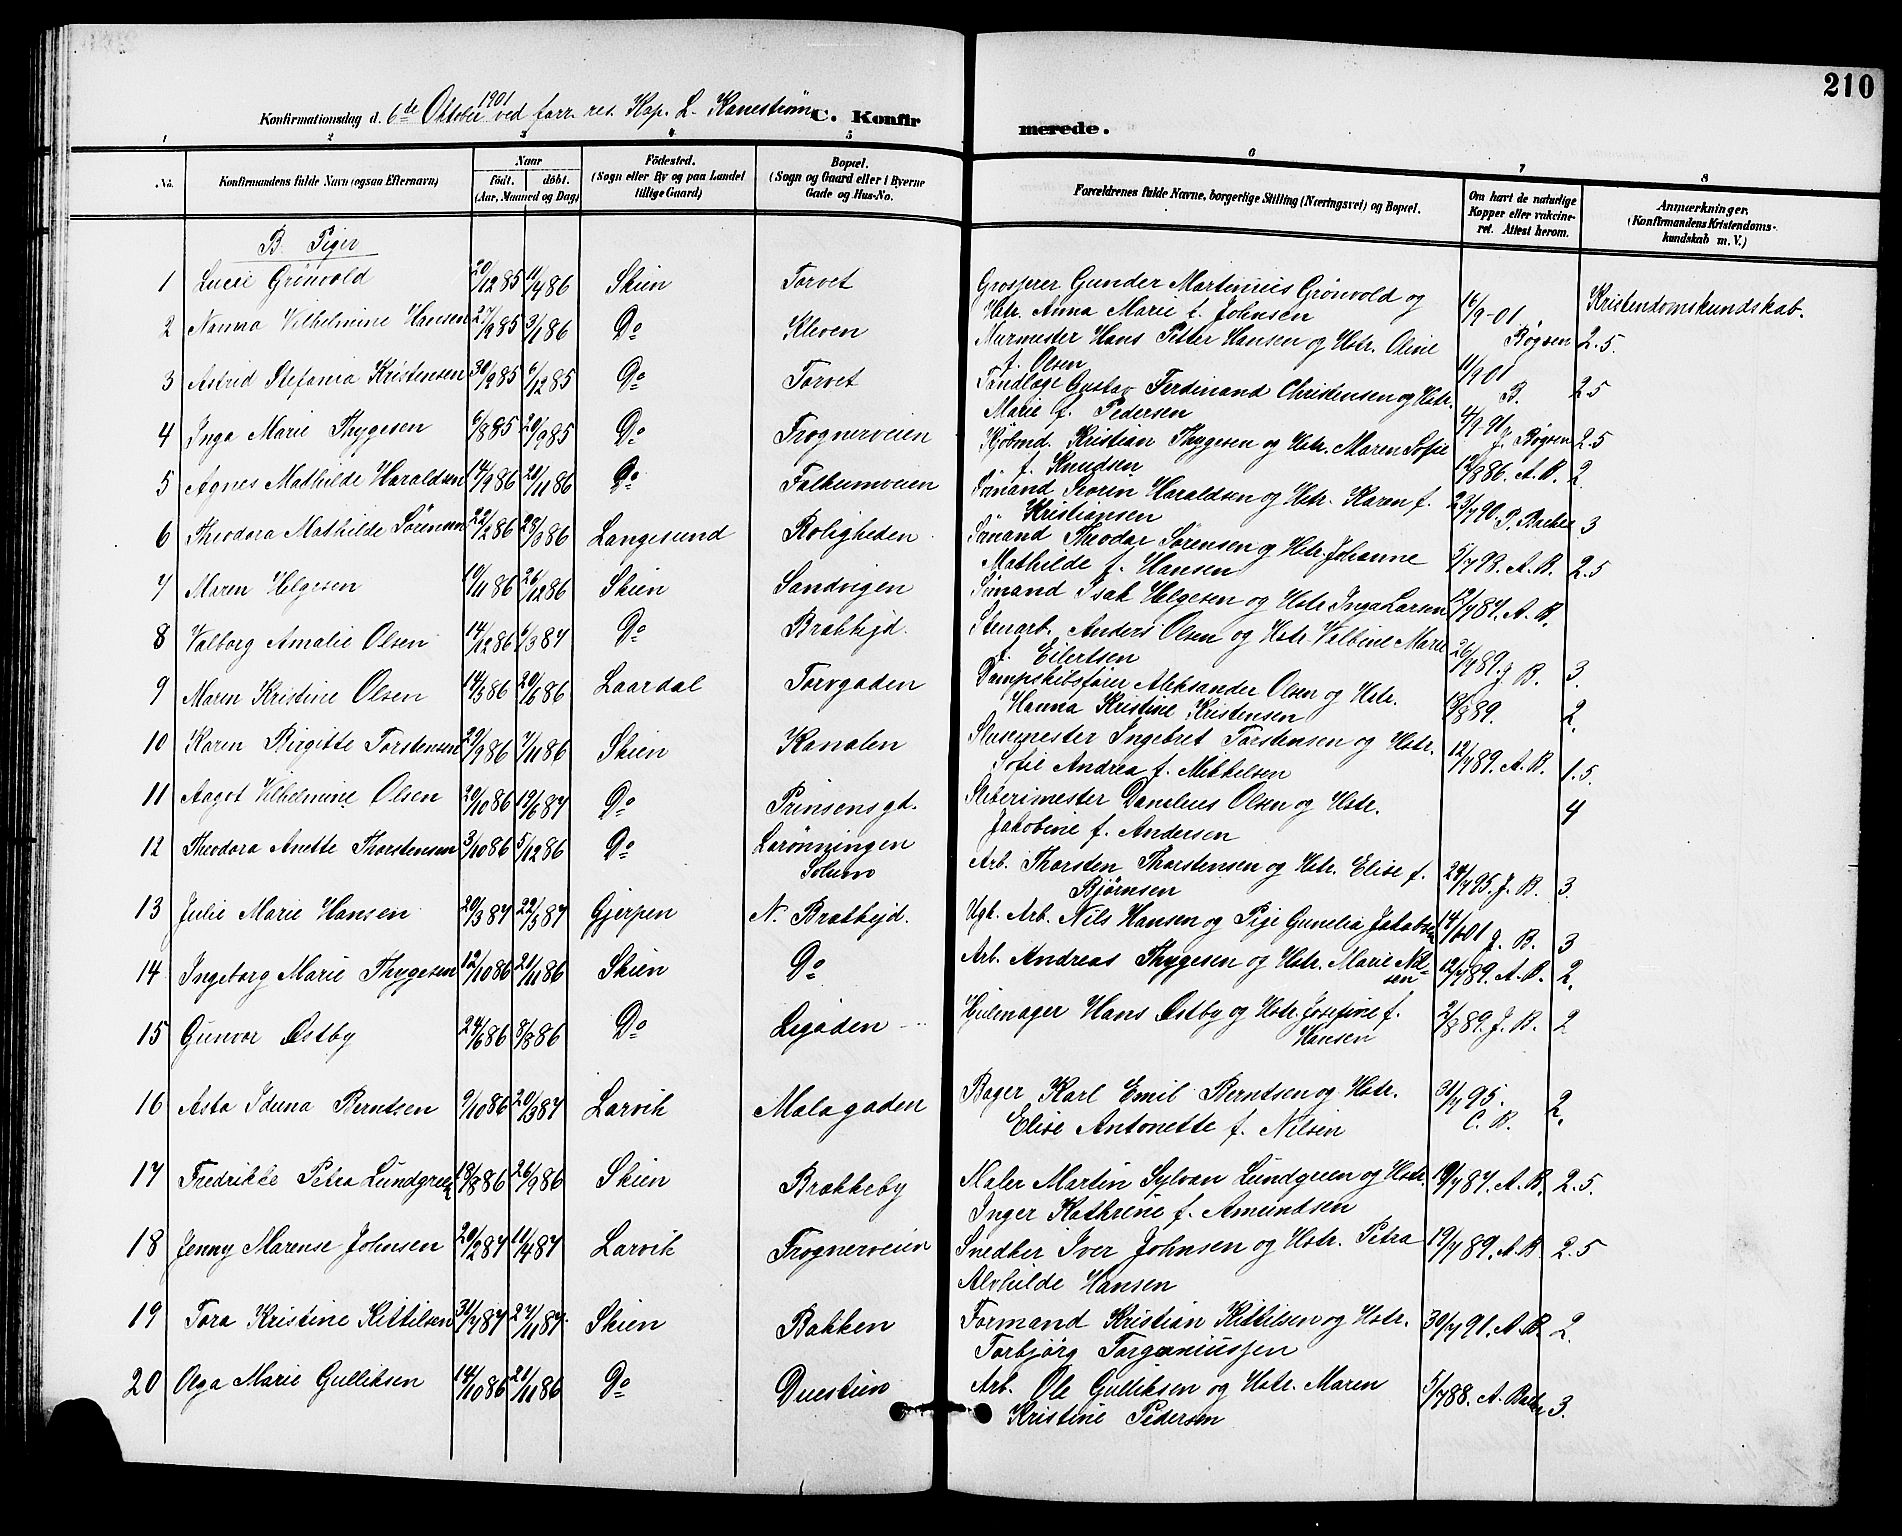 210
Konfirmationsdag d. 6de Oktober 1901 ved forr. res. Kap. L. Kanestrøm C. Konfirmerede.
1 2 3 4 5 6 7 8
No. Konfirmandens fulde Navn (ogsaa Efternavn) Naar født. døbt. (Aar, Maaned og Dag) Fødested. (Sogn eller By og paa Landet tillige Gaard) Bopæl. (Sogn og Gaard eller i Byerne Gade og Hus-No. Forældrenes fulde Navne, borgerlige Stilling (Næringsvei) og Bopæl. Om havt de naturlige Kopper eller vaccineret. Attest herom. Anmærkninger. (Konfirmandens Kristendomskundskab m. V.)
B. Piger
Kristendomskundskab.
1 Lucie Grönvold 20/12 85 11/4 86 Skien Torvet Grosserer Gunder Martinius Grönvold og
Hstr. Anna Marie f. Johnsen 16/9-01. Bøgsen 2.5.
2 Nanna Vilhelmine Hansen 27/9 85 3/1 86 Do Kleven Murmester Hans Petter Hansen og Hstr. Olise
f. Olsen 11/9 01 B. 2.5
3 Astrid Stefania Kristensen 30/9 85 6/12 85 Do Torvet Tandlæge Gustav Ferdinand Christensen og Hstr.
Marie f. Pedersen J. Bøgsen 2.5
4 Inga Marie Thygesen 6/8 85 20/9 85 Do Frognerveien Kjöbmd. Kristian Thygesen og Hstr. Maren Sofie
f. Knudsen 12/8 86. A. B. 2.
5 Agnes Mathilde Haraldsen 14/9 86 20/11 86 Do Falkumveien Sömand Severin Haraldsen og Hstr. Karen f.
Kristiansen 23/7 90 3
6 Theodora Mathilde Sörensen 22/2 86 28/3 86 Langesund Roligheden Sömand Theodor Sörensen og Hstr. Johanne
Mathilde f. Hansen A. B. 2.5
7 Maren Helgesen 10/11 86 26/12 86 Skien Sandvigen Sömand Isak Helgesen og Hstr. Inga Larsen 12/7 89. A. B.
8 Valborg Amalie Olsen 14/12 86 6/3 87 Do Brækkejd. Stengrb. Anders Olsen og Hstr. Valbine Marie
f. Eilertsen 26/7 89. J. B. 3.
9 Maren Kristine Olsen 14/5 86 20/6 86 Laardal Torvgaden Dampskibsfører Aleksander Olsen og Hstr.
Hanna Kristine Kristensen 2.
10 Karen Birgitte Torstensen 29/9 86 7/11 86 Skien Kanalen Slusemester Ingebret Torstensen og Hstr.
Sofie Andrea f. Mikkelsen 12/7 89. A. B. 1.5.
11 Aagot Vilhelmine Olsen 20/10 86 19/6 87 Do Prinsensgd. Sliberimester Danelius Olsen og Hstr.
Jakobine f. Andersen 4
12 Theodora Anette Thorstensen 3/10 86 5/12 86 Do Lorønningen
Solum Arb. Thorsten Thorstensen og Hstr. Elise f.
Bjørnsen 24/7 95. J. B. 3
13 Julie Marie Hansen 20/3 87 22/5 87 Gjerpen N. Brækkejd. Ugk. Arb. Nils Hansen og Pige Gunelia Jakobsen J. B. 3
14 Ingeborg Marie Thygesen 12/10 86 21/11 86 Skien Do Arb. Andreas Thygesen og Hstr. Marie Nilsen 12/7 89. A. B. 2.
15 Gunvor Østby 24/6 86 8/8 86 Do Ligaden Hjulmager Hans Østby og Hstr. Josefine f.
Hansen 2/8 89. J. B. 2
16 Asta Iduna Berntsen 9/10 86 20/3 87 Larvik Malagaden Bager Karl Emil Berntsen og Hstr.
Elise Antonette f. Nilsen 31/7 95. C. B. 2.
17 Fredrikke Petra Lundgreen 18/8 86 26/9 86 Skien Brækkeby Maler Martin Sylvan Lundgreen og Hstr.
Inger Kathrine f. Amundsen 19/7 87. A. B. 2.5.
18 Jenny Marense Johnsen 20/2 87 11/4 87 Larvik Frognerveien Snedker Iver Johnsen og Hstr. Petra
Alvhilde Hansen 19/7 89. A. B. 2.5
19 Tora Kristine Kittilsen 31/7 87 27/11 87. Skien Bakken Formand Kristian Kittilsen og Hstr.
Torbjørg Torgeniussen 30/7 91. A. B. 2.
20 Olga Marie Gulliksen 14/10 86 21/11 86 Do Duestien Arb. Ole Gulliksen og Hstr. Maren
Kristine Pedersen 5/7 88. A. 3.